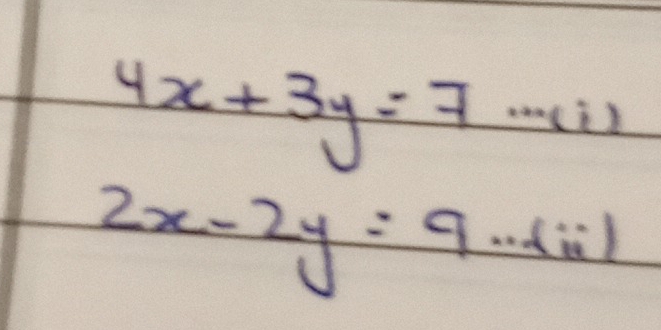 4x + 3y = 7 ...(i)
2x - 2y = 9 ...(ii)